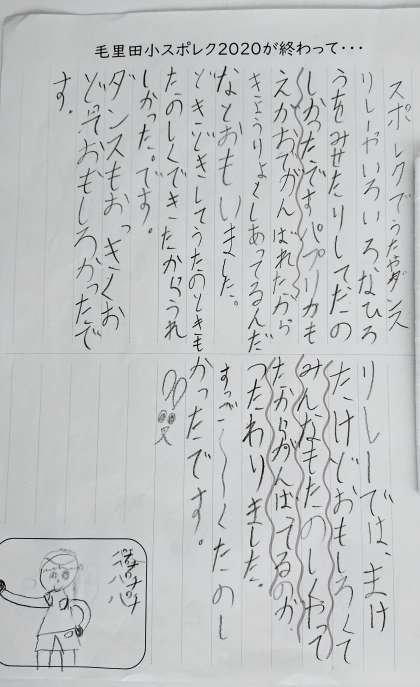 毛里田小スポレク2020が終わって・・・
スポレクでうたやダンス
リレーやいろいろなひろ
うをみせたりしてたの
しかったですパプリカも
えがおでがんばれたから
きょうりょくしあってるんだ
なとおもいました。
どきどきしてうたのときも
たのしくできたからうれ
しかった。です。
ダンスもおっきくお
どってておもしろかったで
す。
リレーでは、まけ
たけどおもしろくて
みんなもたのしくやって
たからがんばってるのが
つたわりました。
すっごーーくたのし
かったです。